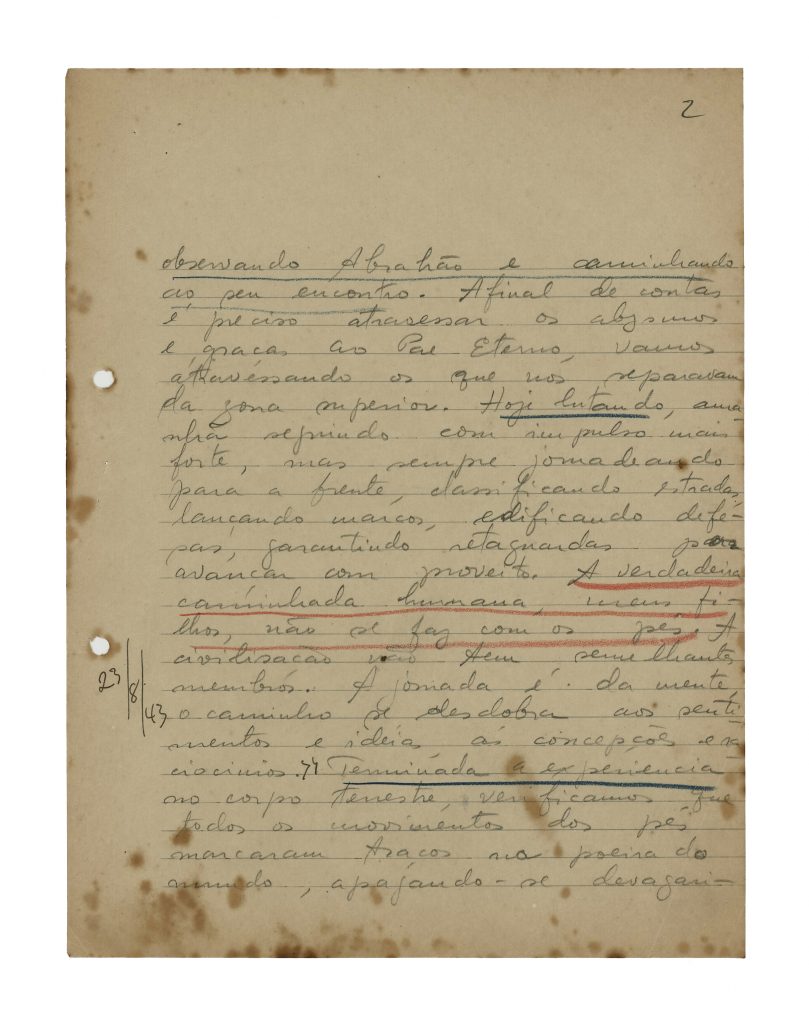 2
observando Abrahão e caminhando
ao seu encontro. Afinal de contas
é preciso atravessar os abysmos
e, graças ao Pae Eterno, vamos
atravéssando os que nos separavam
da zona superior. Hoje lutando, ama-
nhã seguindo com impulso mais
forte, mas sempre jornadeando
para a frente, classificando estradas,
lançando marcos, edificando defe-
sas, garantindo retaguardas para
avançar com proveito. A verdadeira
caminhada humana, meus fi-
lhos, não se faz com os pés. A
civilisação não tem semelhantes
membros. A jornada é da mente,
o caminho se desdobra aos senti-
mentos e idéias ás concepções e ra-
ciocinios. Terminada a experiencia
no corpo terrestre, verificamos que
todos os movimentos dos pés
marcaram traços na poeira do
mundo, apagando-se devagari-
23/8/43